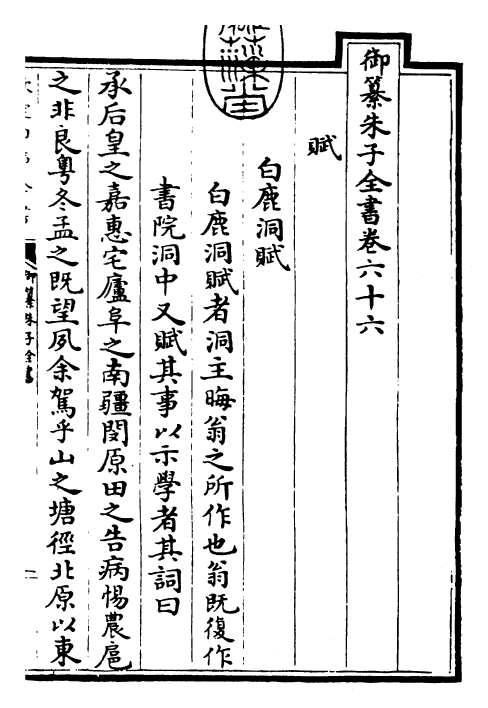 御纂朱子全書卷六十六
賦
白鹿洞賦
白鹿洞賦者洞主晦翁之所作也翁既復作
書院洞中又賦其事以示學者其詞曰
承后皇之嘉惠宅廬阜之南疆閔原田之告病惕農扈
之非良粵冬孟之既望夙余駕乎山之塘徑北原以東
御纂朱子全書